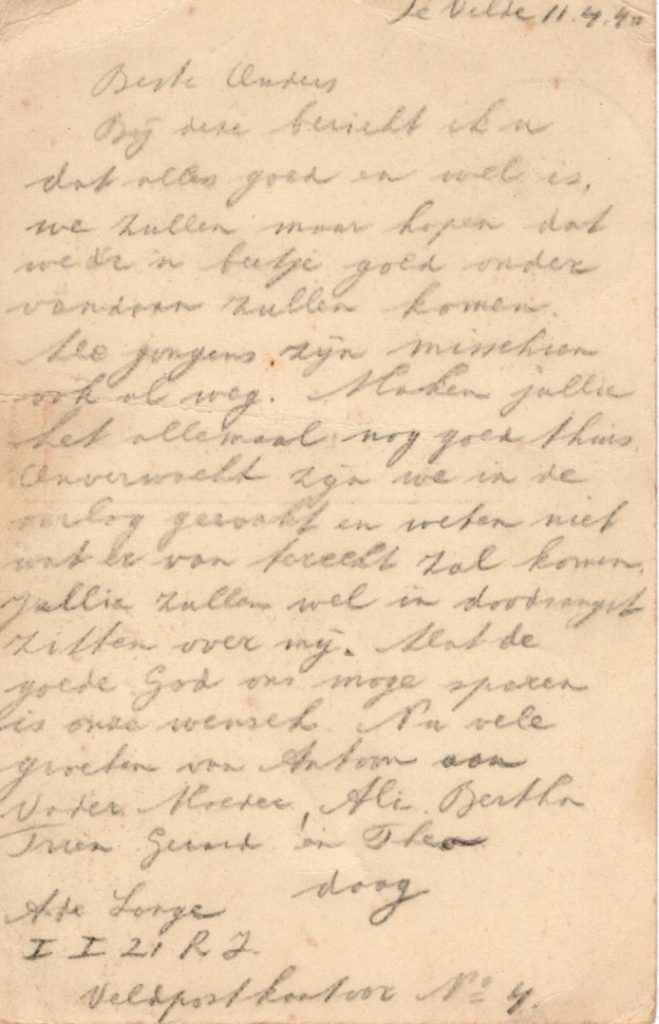 te Velde 11.4.40
Beste Ouders
Bij deze bericht ik u
dat alles goed en wel is,
we zullen maar hopen dat
we er 'n beetje goed onder
vandaan zullen komen.
De jongens zijn misschien
ook al weg. Maken jullie
het allemaal nog goed thuis
Onverwacht zijn we in de
oorlog geraakt en weten niet
wat er van terecht zal komen.
Jullie zullen wel in doodsangst
zitten over mij. Dat de
goede God ons moge sparen
is onze wensch. Nu vele
groeten van Antoon aan
Vader Moeder, Ali Bertha
Trien Gerard en Theo
daag
A de Lange
I I 21 R J.
Veldpostkantoor No 4.